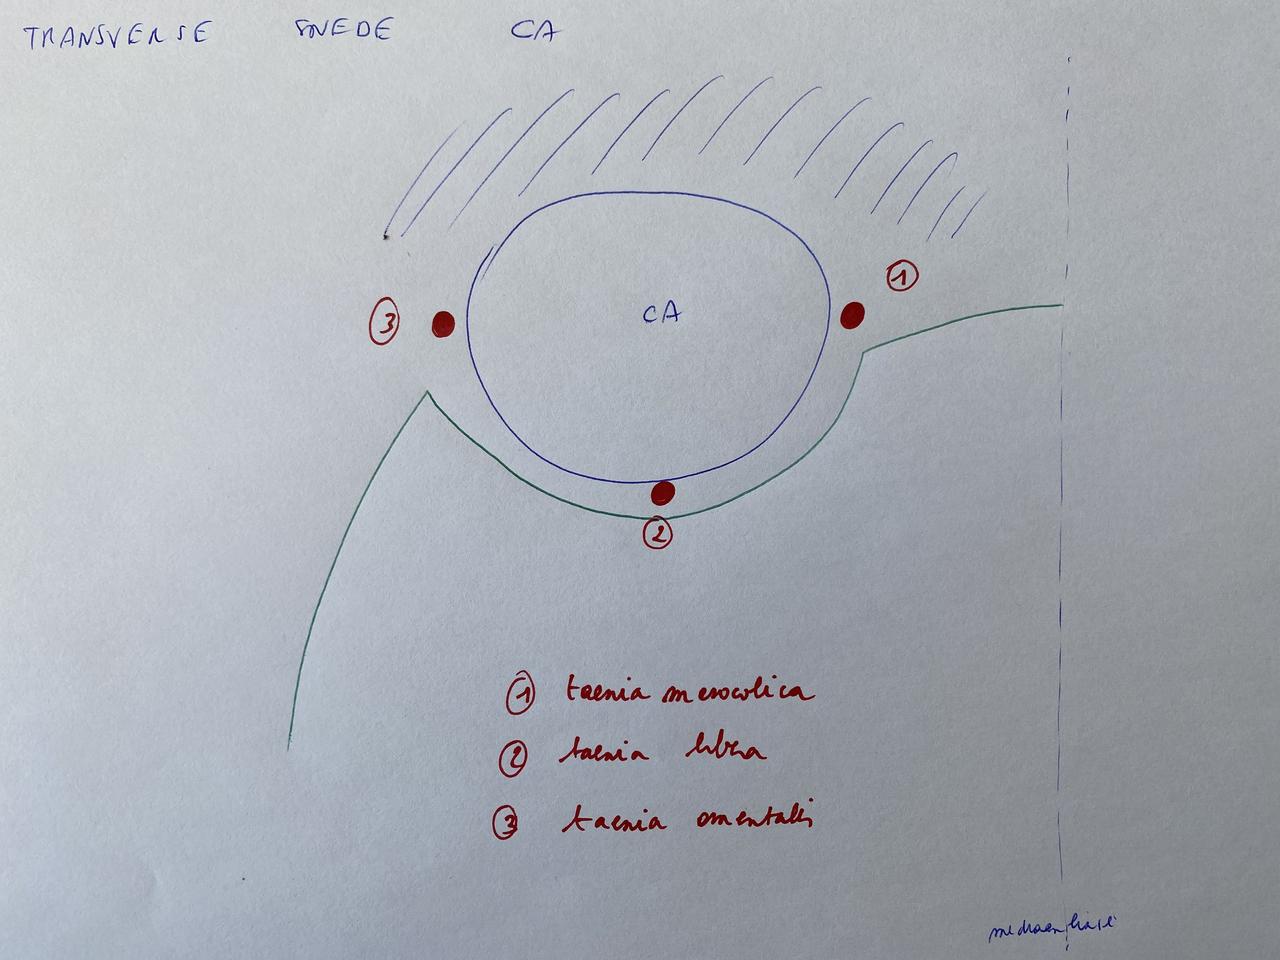 TRANSVERSE SNEDE CA
1
3
CA
2
1 taenia mesocolica
2 taenia libra
3 taenia omentalis